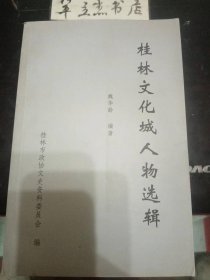 桂林文化城人物选辑
魏华龄 编著
桂林市政协文史资料委员会 编